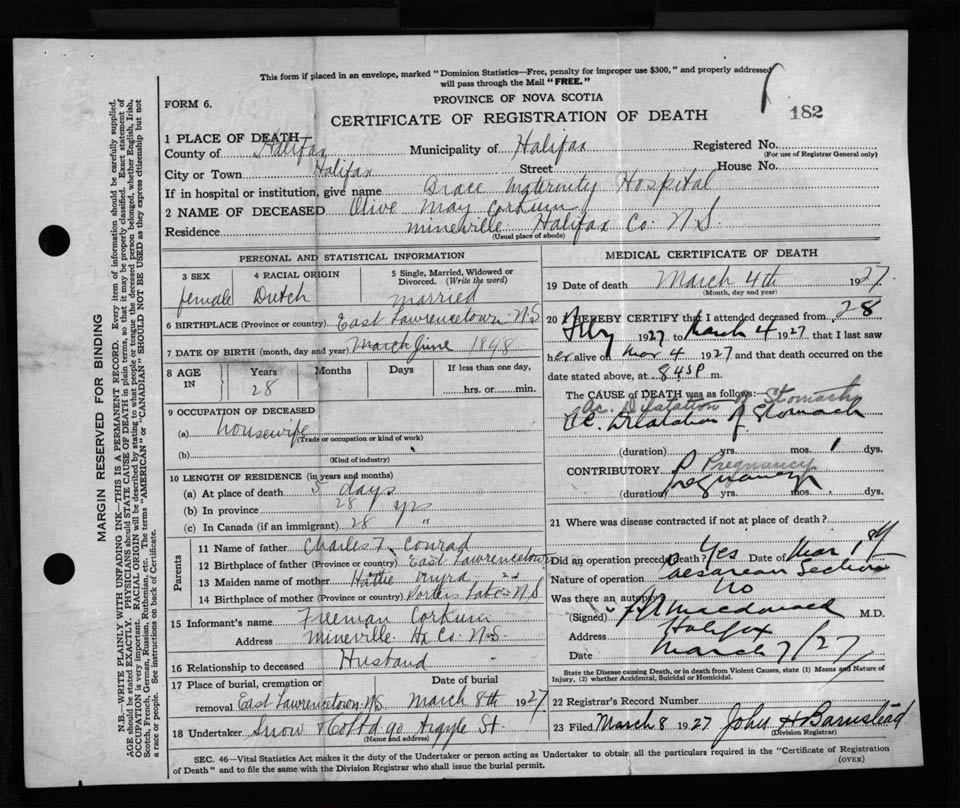 This form if placed in an envelope, marked "Dominion Statistics—Free, penalty for improper use $300," and properly addressed
will pass through the Mail "FREE."
FORM 6.
PROVINCE OF NOVA SCOTIA
182
CERTIFICATE OF REGISTRATION OF DEATH
1 PLACE OF DEATH—
County of Halifax Municipality of Halifax Registered No.
(For use of Registrar General only)
City or Town Halifax Street House No.
If in hospital or institution, give name Grace Maternity Hospital
2 NAME OF DECEASED Olive May Corkum
Residence Mineville Halifax Co. N.S.
(Usual place of abode)
PERSONAL AND STATISTICAL INFORMATION
3 SEX 4 RACIAL ORIGIN 5 Single, Married, Widowed or
Divorced. (Write the word)
female Dutch married
6 BIRTHPLACE (Province or country) East Lawrencetown N.S
7 DATE OF BIRTH (month, day and year) March June 1898
8 AGE IN Years Months Days If less than one day,
28 hrs. or min.
9 OCCUPATION OF DECEASED
(a) housewife
(Trade or occupation or kind of work)
(b)
(Kind of industry)
10 LENGTH OF RESIDENCE (in years and months)
(a) At place of death 5 days
(b) In province 28 yrs
(c) In Canada (if an immigrant) 28 "
Parents
11 Name of father Charles Conrad
12 Birthplace of father (Province or country) East Lawrencetown
13 Maiden name of mother Hattie
14 Birthplace of mother (Province or country) Porters Lake N.S
15 Informant's name Freeman Corkum
Address Mineville Hx Co. N.S.
16 Relationship to deceased Husband
17 Place of burial, cremation or Date of burial
removal East Lawrencetown N.S. March 8th 1927
18 Undertaker Snow & Co Ltd 90 Argyle St
(Name and address)
MEDICAL CERTIFICATE OF DEATH
19 Date of death March 4th 1927
(Month, day and year)
20 I HEREBY CERTIFY that I attended deceased from 28
Feby 1927 to March 4 1927 that I last saw
her alive on Mar 4 1927 and that death occurred on the
date stated above, at 8 45 P m.
The CAUSE of DEATH was as follows:
Ac. Dilatation of Stomach
Ac. Dilatation of Stomach
(duration) yrs. mos. 1 dys.
CONTRIBUTORY Pregnancy
Pregnancy
(duration) yrs. mos. dys.
21 Where was disease contracted if not at place of death?
Did an operation precede death? Yes Date of Mar 1
Nature of operation Cesarean Section
Was there an autopsy No
(Signed) Macdonald M.D.
Address Halifax
Date March 7/27
State the Disease causing Death, or in death from Violent Causes, state (1) Means and Nature of
Injury, (2) whether Accidental, Suicidal or Homicidal.
22 Registrar's Record Number
23 Filed March 8 1927 John H Barnstead
(Division Registrar)
SEC. 46—Vital Statistics Act makes it the duty of the Undertaker or person acting as Undertaker to obtain all the particulars required in the "Certificate of Registration
of Death" and to file the same with the Division Registrar who shall issue the burial permit.
(OVER)
MARGIN RESERVED FOR BINDING
N.B.—WRITE PLAINLY WITH UNFADING INK—THIS IS A PERMANENT RECORD. Every item of information should be carefully supplied.
AGE should be stated EXACTLY. PHYSICIANS should STATE CAUSE OF DEATH in plain terms, so that it may be properly classified. Exact statement of
OCCUPATION is very important. RACIAL ORIGIN will be described by stating to what people or tongue the deceased person belonged, whether English, Irish,
Scotch, French, German, Russian, Ruthenian, etc. The terms "AMERICAN" or "CANADIAN" SHOULD NOT BE USED as they express citizenship but not
a race or people. See instructions on back of Certificate.